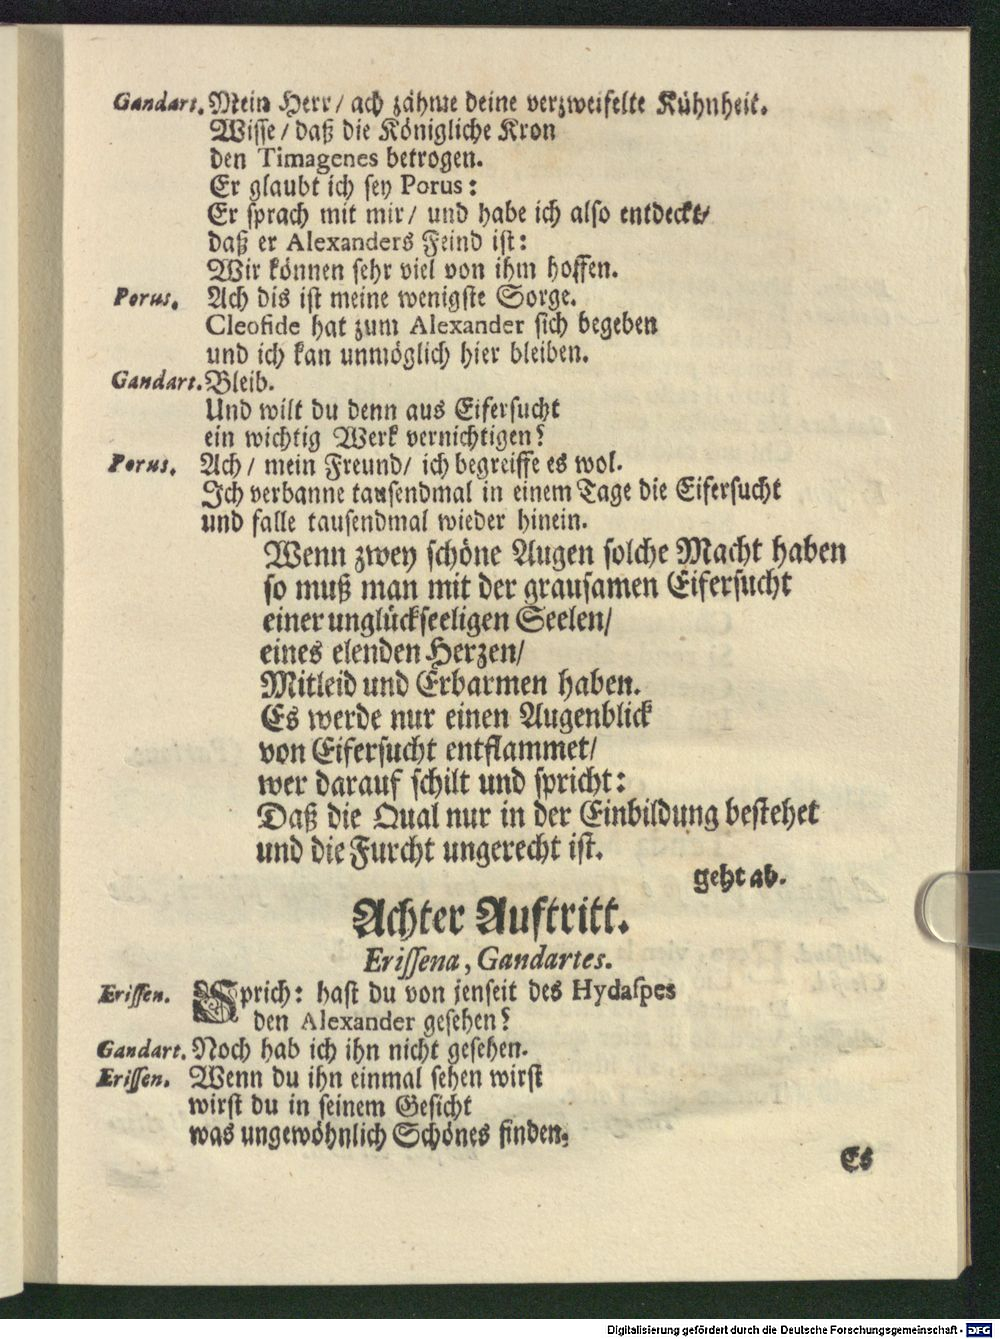 Gandart. Mein Herr/ ach zähme deine verzweifelte Kühnheit.
Wisse/ daß die Königliche Kron
den Timagenes betrogen.
Er glaubt ich sey Porus:
Er sprach mit mir/ und habe ich also entdeckt/
daß er Alexanders Feind ist:
Wir können sehr viel von ihm hoffen.
Porus. Ach dis ist meine wenigste Sorge.
Cleofide hat zum Alexander sich begeben
und ich kan unmöglich hier bleiben.
Gandart. Bleib.
Und wilt du denn aus Eifersucht
ein wichtig Werk vernichtigen?
Porus. Ach/ mein Freund/ ich begreiffe es wol.
Ich verbanne tausendmal in einem Tage die Eifersucht
und falle tausendmal wieder hinein.
Wenn zwey schöne Augen solche Macht haben
so muß man mit der grausamen Eifersucht
einer unglückseeligen Seelen/
eines elenden Herzen/
Mitleid und Erbarmen haben.
Es werde nur einen Augenblick
von Eifersucht entflammet/
wer darauf schilt und spricht:
Daß die Qual nur in der Einbildung bestehet
und die Furcht ungerecht ist.
geht ab.
Achter Auftritt.
Erissena, Gandartes.
Erissen. Sprich: hast du von jenseit des Hydaspes
den Alexander gesehen?
Gandart. Noch hab ich ihn nicht gesehen.
Erissen. Wenn du ihn einmal sehen wirst
wirst du in seinem Gesicht
was ungewöhnlich Schönes finden;
Es
Digitalisierung gefördert durch die Deutsche Forschungsgemeinschaft - DFG